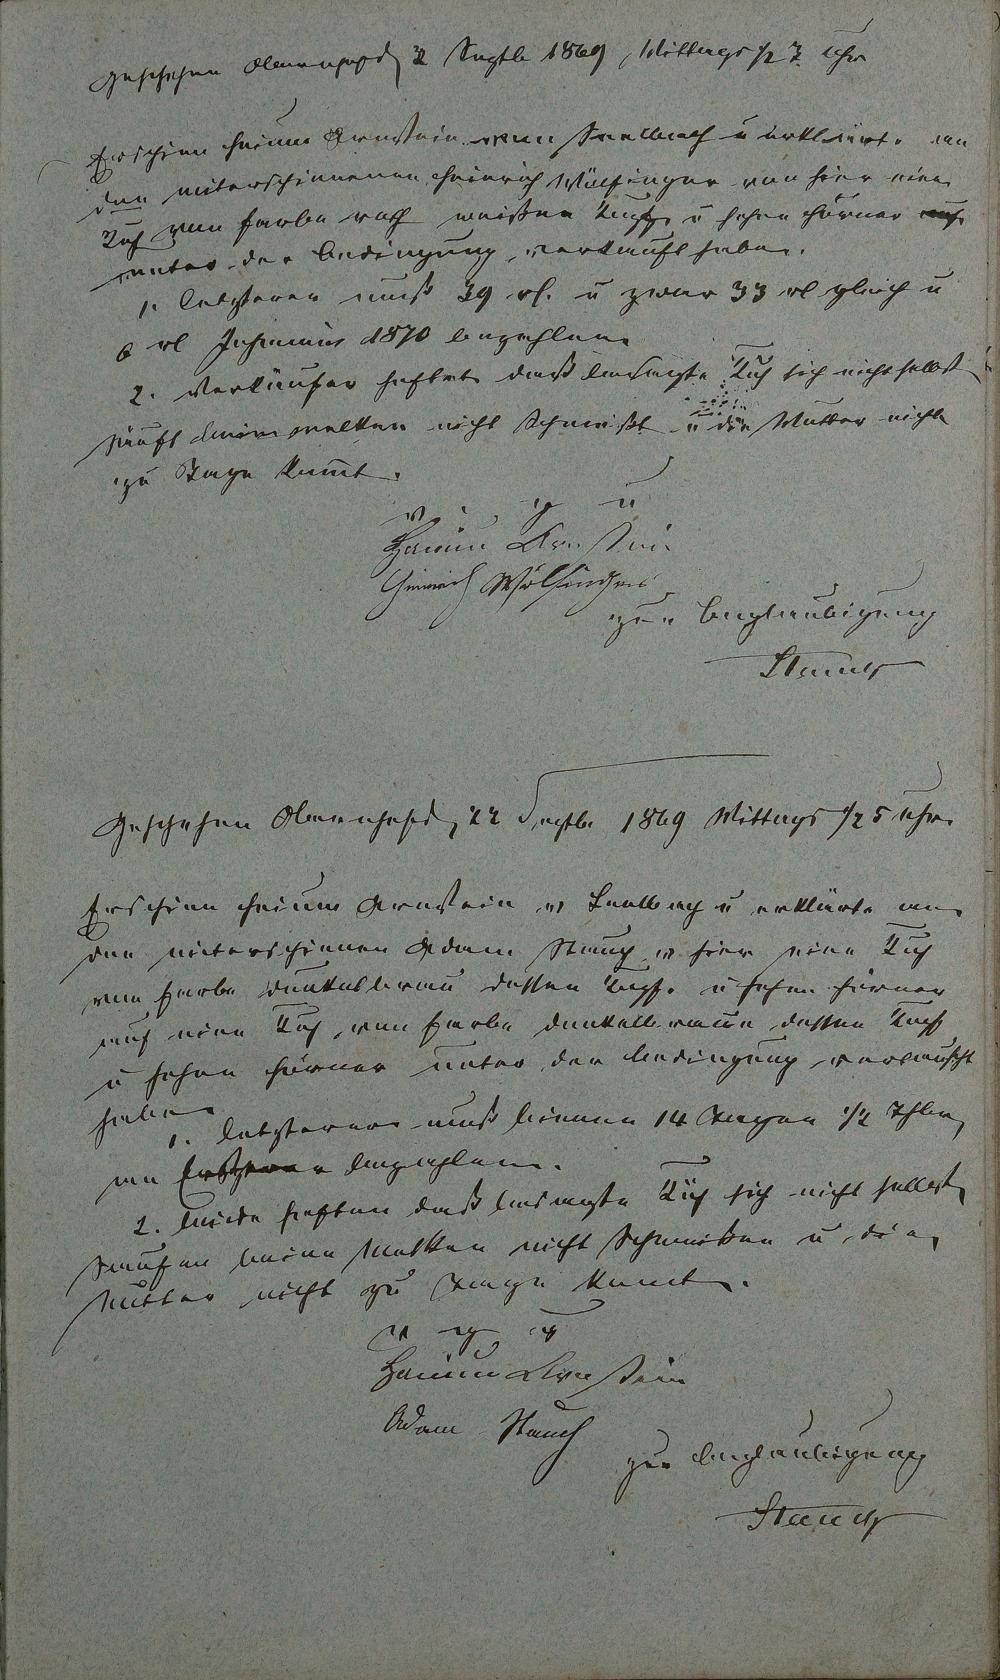 Geschehen Obernhofd, 2 Septb 1869, Mittags 1/2 7 Uhr
Erschien Heium Arnstein von Saalbach u erklärte an
den miterschienenen Heinrich Wölfinger von hier eine
Kuh von Farbe roth weißen Kopf u hohen Hörner
unter der Bedingung verkauft haben.
1. Letzterer muß 39 rl. u zwar 33 rl gleich u
6 rl Johannis 1870 bezahlen
2. Verkäufer haftet daß besagte Kuh sich nicht selbst
säuft beim melken nicht schmeißt u die Mutter nicht
zu Tage kommt.
v g u
Heium Arnstein
Heinrich Wölfinger
zur Beglaubigung
Stauch
Geschehen Obernhofd, 22 Septb. 1869 Mittags 1/2 5 Uhr
Erschien Heium Arnstein v Saalbach u erklärte an
den miterschienen Adam Stauch v hier eine Kuh
von Farbe dunkelbrau dessen Kopf u hohen Hörner
auf eine Kuh von Farbe dunkelbraun dessen Kopf
u hohen Hörner unter der Bedingung vertauscht
haben
1. Letzterer muß binnen 14 Tagen 1/2 Thlr,
an Ersterer bezahlen.
2. Beide haften daß besagte Küh sich nicht selbst
saufen beim Melken nicht schmeißen u die
Mutter nicht zu Tage kommt.
v g u
Heium Arnstein
Adam Stauch
zur Beglaubigung
Stauch